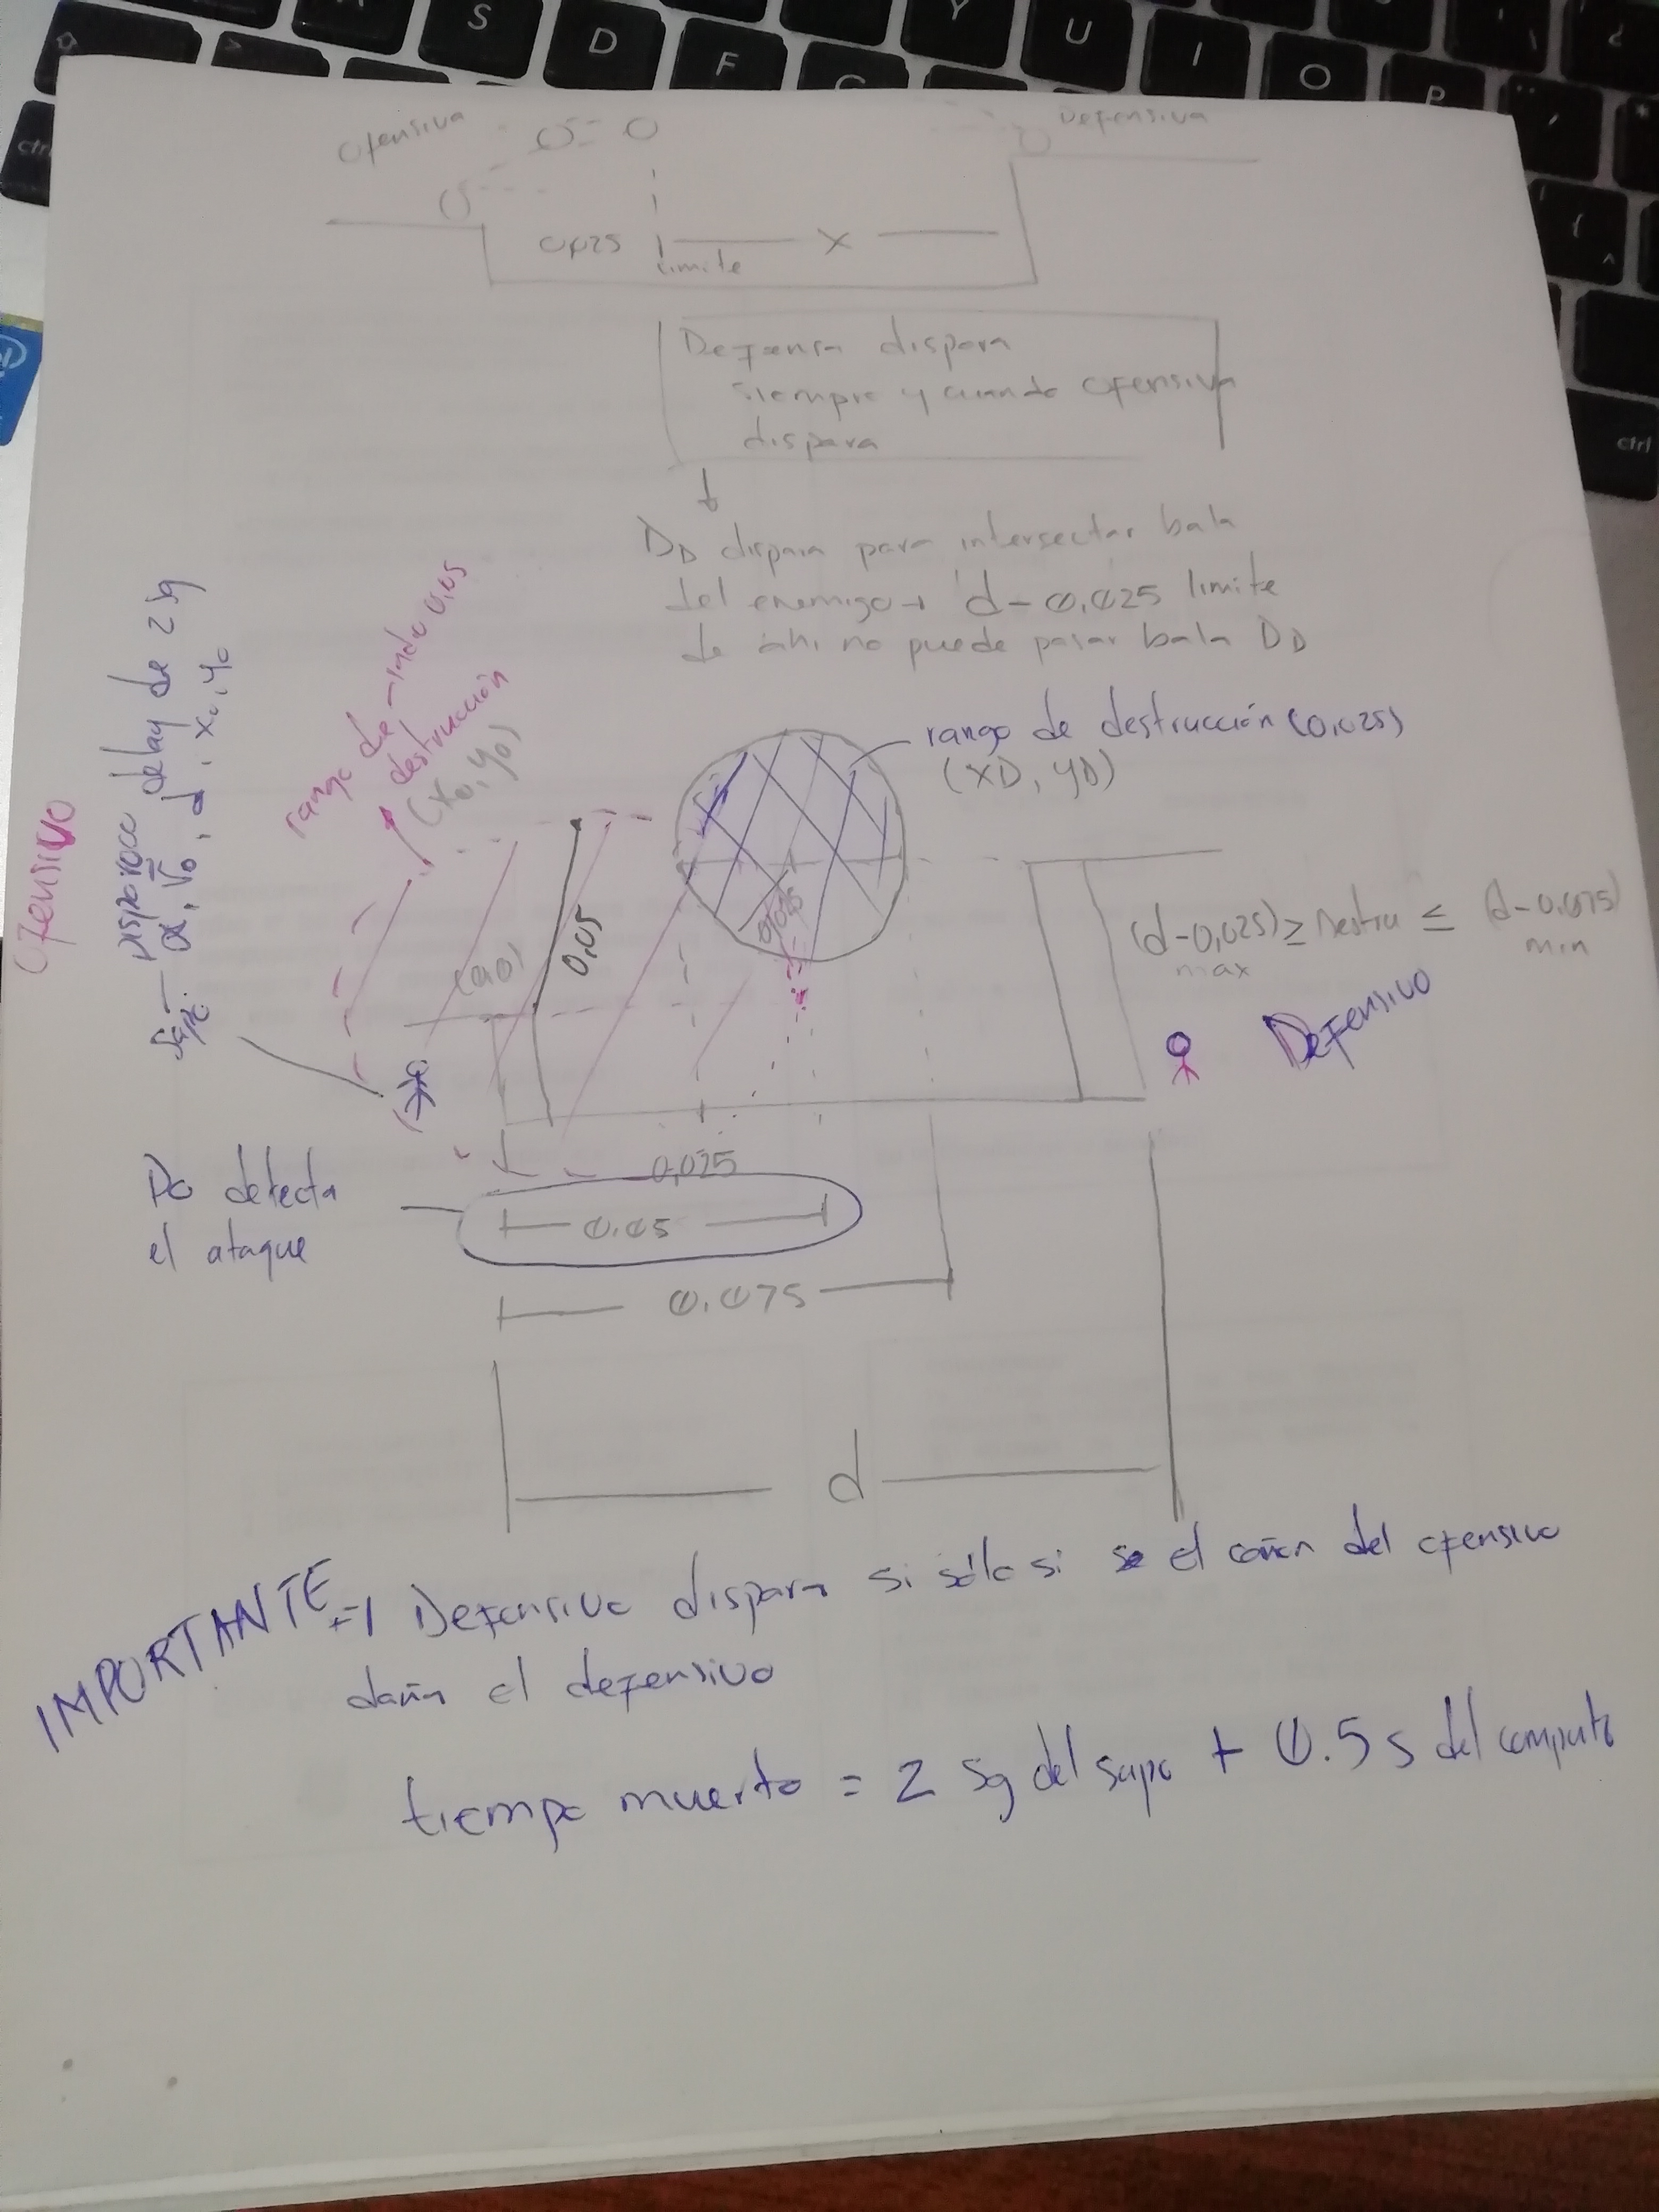 S
D
F
Y
U
I
O
P
ctrl
ctrl
Ofensiva
Defensiva
0,025
limite
X
Defensa dispara
siempre y cuando ofensiva
dispara
DD dispara para intersectar bala
del enemigo → d-0,025 limite
de ahi no puede pasar bala DD
rango de destrucción (0,025)
(XD, YD)
rango de 0,05
destrucción
(X0, Y0)
Ofensivo
delay de 2 sg
α, V0, d, X0, Y0
(0,0)
0,05
0,025
(d-0,025) ≥ Destru ≤ (d-0,075)
max
min
Defensivo
DO detecta
el ataque
0,025
0.05
0.075
d
IMPORTANTE
Defensivo dispara si sólo si el cañón del ofensivo
daña el defensivo
tiempo muerto = 2 sg del sapo + 0.5 s del computo